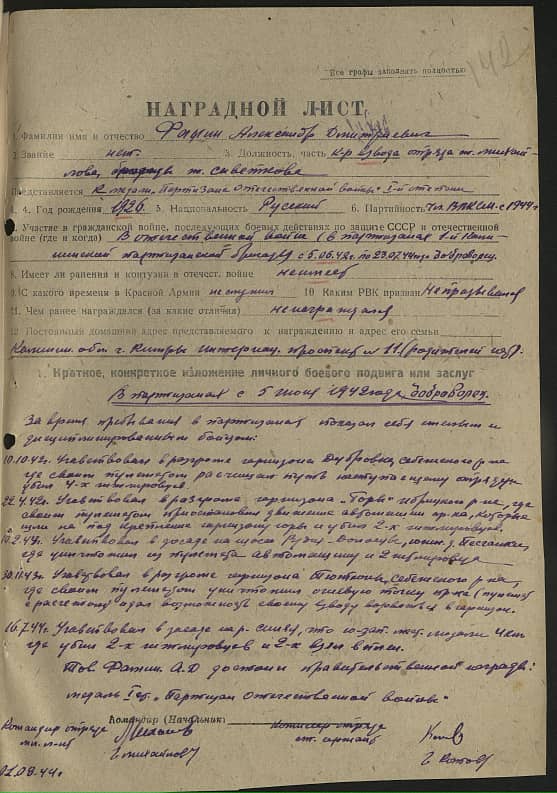 142
Все графы заполнять полностью
НАГРАДНОЙ ЛИСТ
1. Фамилия имя и отчество Александр Дмитриевич
2. Звание нет. 3. Должность, часть к-р взвода отряда т. Михай-
лова, бригады т.
Представляется к медали „Партизана Отечественной войны" I-й степени
4. Год рождения 1926 5. Национальность Русский 6. Партийность чл. ВЛКСМ с 1944г
7. Участие в гражданской войне, последующих боевых действиях по защите СССР и отечественной
войне (где и когда) В отечественной войне (в партизанах 1-й Кали-
нинской партизанской бригады с 5.06.42г. по 23.07.44г. Доброволец.
8. Имеет ли ранения и контузии в отечест. войне не имеет
9. С какого времени в Красной Армии не служил 10. Каким РВК призван Не призывался
11. Чем ранее награждался (за какие отличия) не награждался
12. Постоянный домашний адрес представляемого к награждению и адрес его семьи
Калинин. обл. г. Кимры проспект 11.
Краткое, конкретное изложение личного боевого подвига или заслуг
В партизанах с 5 июня 1942 года, доброволец.
За время пребывания в партизанах показал себя смелым и
дисциплинированным бойцом:
10.10.42г. Участвовал в разгроме гарнизона Дубровка, Себежского р-на
где своим пулеметом расчищал путь наступающему отряду
убил 4-х гитлеровцев.
Участвовал в разгроме гарнизона „Горы" р-на, где
своим пулеметом приостановил движение автомашин пр-ка, которые
шли на подкрепление гарнизону горы и убил 2-х гитлеровцев.
Участвовал в засаде на шоссе
где уничтожил из пулемета автомашину и 2 гитлеровца
Участвовал в разгроме гарнизона Себежского р-на,
где своим пулеметом уничтожил огневую точку пр-ка (пулемет
с расчетом) дал возможность своему взводу ворваться в гарнизон.
16.7.44г. Участвовал в засаде
где убил 2-х гитлеровцев и 2-х взял в плен.
Тов. А.Д достоин правительственной награды:
медаль I ст. „Партизан Отечественной войны"
Командир (Начальник)
Командир отряда
мл. л-нт
Михайлов
Комиссар отряда
ст. сержант